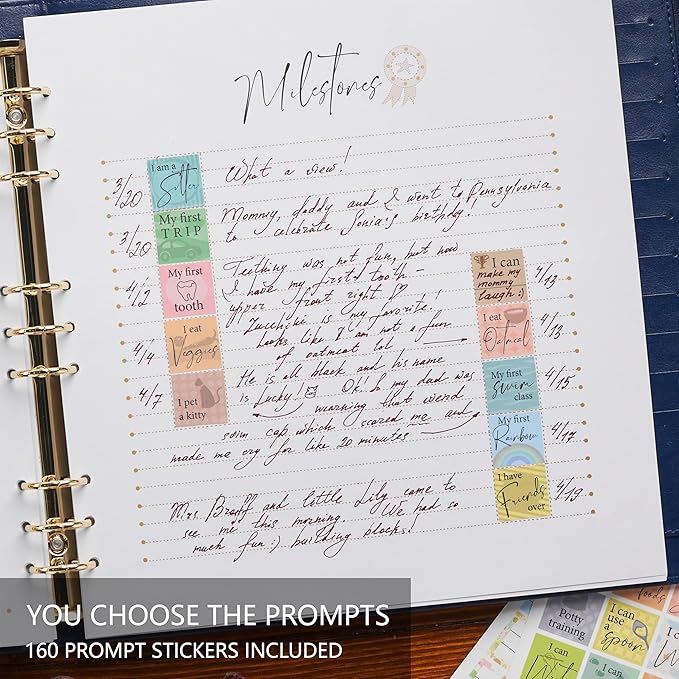 Milestones
3/20 I am a Sitter What a view!
3/20 My first TRIP Mommy, daddy and I went to Pennsylvania
to celebrate Sonia's birthday!
4/2 My first tooth Teething was not fun, but now
I have my first tooth –
upper front right ♡
4/4 I eat Veggies Zucchini is my favorite!
Looks like I am not a fun
of oatmeal lol
4/7 I pet a kitty He is all black and his name
is Lucky! Ok! b my dad was
wearning that weird
swim cap which scared me and
made me cry for like 20 minutes
I can make my mommy laugh :) 4/13
I eat Oatmeal 4/13
My first Swim class 4/15
My first Rainbow 4/17
I have Friends over 4/19
Mrs. Broff and little Lily came to
see me this morning. We had so
much fun :) building blocks!
YOU CHOOSE THE PROMPTS
160 PROMPT STICKERS INCLUDED
foods
Potty training
I can use a spoon
I can
I can